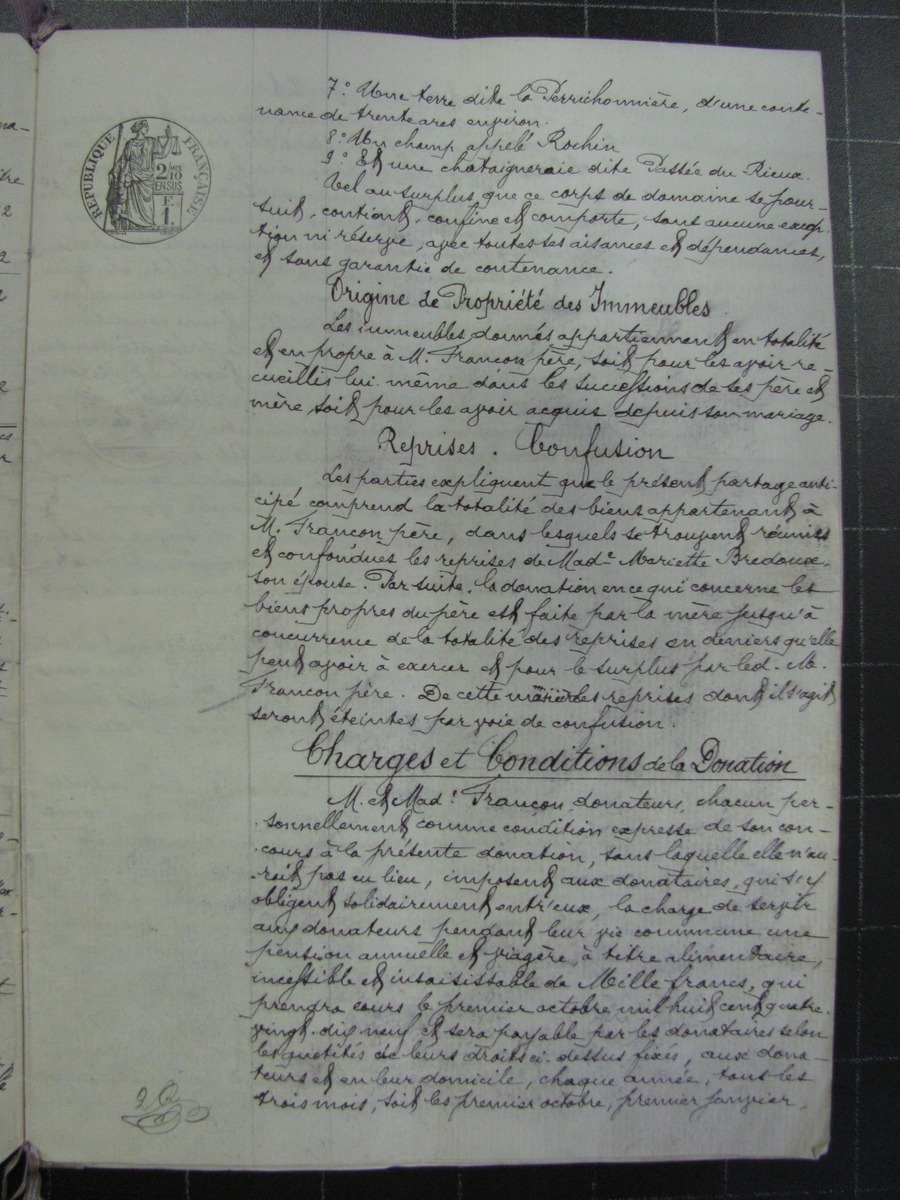 RÉPUBLIQUE FRANÇAISE
2/10
EN SUS
7° Une terre dite la Perrichonnière, d'une conte-
nance de trente ares environ.
8° Un champ appelé Rochin
9° Et une chataigneraie dite Passée du Rieux.
Tel au surplus que ce corps de domaine se pour-
suit, contient, confine et comporte, sans aucune excep-
tion ni réserve, avec toutes ses aisances et dépendances,
et sans garantie de contenance.
Origine de Propriété des Immeubles
Les immeubles donnés appartiennent en totalité
et en propre à M. Françon père, soit pour les avoir re-
cueillis lui même dans les successions de ses père et
mère, soit pour les avoir acquis depuis son mariage.
Reprises. Confusion
Les parties expliquent que le présent partage anti-
cipé comprend la totalité des biens appartenant à
M. Françon père, dans lesquels se trouvent réunies
et confondues les reprises de Made Mariette Bredoux,
son épouse. Par suite, la donation en ce qui concerne les
biens propres du père est faite par la mère jusqu'à
concurrence de la totalité des reprises en deniers qu'elle
peut avoir à exercer et pour le surplus par led. M.
Françon père. De cette manière les reprises dont il s'agit
seront éteintes par voie de confusion.
Charges et Conditions de la Donation
M. et Made Françon, donateurs, chacun per-
sonnellement comme condition expresse de son con-
cours à la présente donation, sans laquelle elle n'au-
rait pas eu lieu, imposent aux donataires, qui s'y
obligent solidairement entr'eux, la charge de servir
aux donateurs pendant leur vie commune une
pension annuelle et viagère, à titre alimentaire,
incessible et insaisissable de Mille francs, qui
prendra cours le premier octobre mil huit cent quatre
vingt-dix neuf et sera payable par les donataires selon
les quotités de leurs droits ci-dessus fixés, aux dona-
teurs et en leur domicile, chaque année, tous les
trois mois, soit les premier octobre, premier janvier,